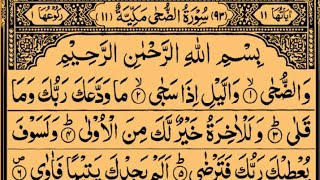 اٰيَاتُهَا ١١ (٩٣) سُوْرَةُ الضُّحٰى مَكِّيَّةٌ (١١) رُكُوْعُهَا ١
بِسْمِ اللّٰهِ الرَّحْمٰنِ الرَّحِيْمِ
وَالضُّحٰى ۝١ وَالَّيْلِ اِذَا سَجٰى ۝٢ مَا وَدَّعَكَ رَبُّكَ وَمَا
قَلٰى ۝٣ وَلَلْاٰخِرَةُ خَيْرٌ لَّكَ مِنَ الْاُوْلٰى ۝٤ وَلَسَوْفَ
يُعْطِيْكَ رَبُّكَ فَتَرْضٰى ۝٥ اَلَمْ يَجِدْكَ يَتِيْمًا فَاٰوٰى ۝٦